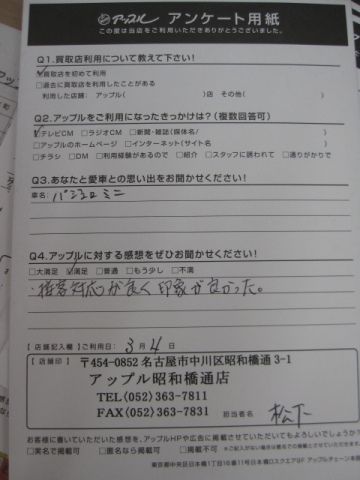 アップル アンケート用紙
この度は当店をご利用いただきありがとうございました。
Q1.買取店利用について教えて下さい!
☑買取店を初めて利用
□過去に買取店を利用したことがある
利用した店舗: アップル( )店 その他( )
Q2.アップルをご利用になったきっかけは?(複数回答可)
☑テレビCM □ラジオCM □新聞・雑誌(媒体名/ )
□アップルのホームページ □インターネット(サイト名 )
□チラシ □DM □利用経験があるので □紹介 □スタッフに誘われて □通りがかりで
Q3.あなたと愛車との思い出をお聞かせください!
車名: パジェロミニ
Q4.アップルに対する感想をぜひお聞かせください!
□大満足 ☑満足 □普通 □もう少し □不満
・接客対応が良く印象が良かった。
【店舗記入欄】ご利用日: 3月4日
【店舗印】
〒454-0852 名古屋市中川区昭和橋通 3-1
アップル昭和橋通店
TEL(052)363-7811
FAX(052)363-7831
担当者名 松下
お客様に書いていただいた感想を、アップルHPや広告に掲載させていただいてもよろしいでしょうか?
□実名で掲載可 □匿名なら掲載可 □掲載不可
東京都中央区日本橋1丁目19番1号日本橋ロスクエア5F アップルチェーン本部